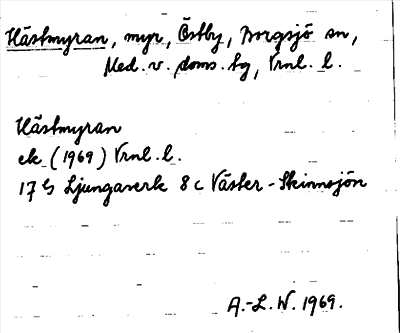 Hästmyran, myr, Östby, Borgsjö sn,
Med. v. doms. tg, Vrnl. l.
Hästmyran
ek (1969) Vrnl. l.
17 G Ljungaverk 8 c Väster-Skinnsjön
A.-L. W. 1969.